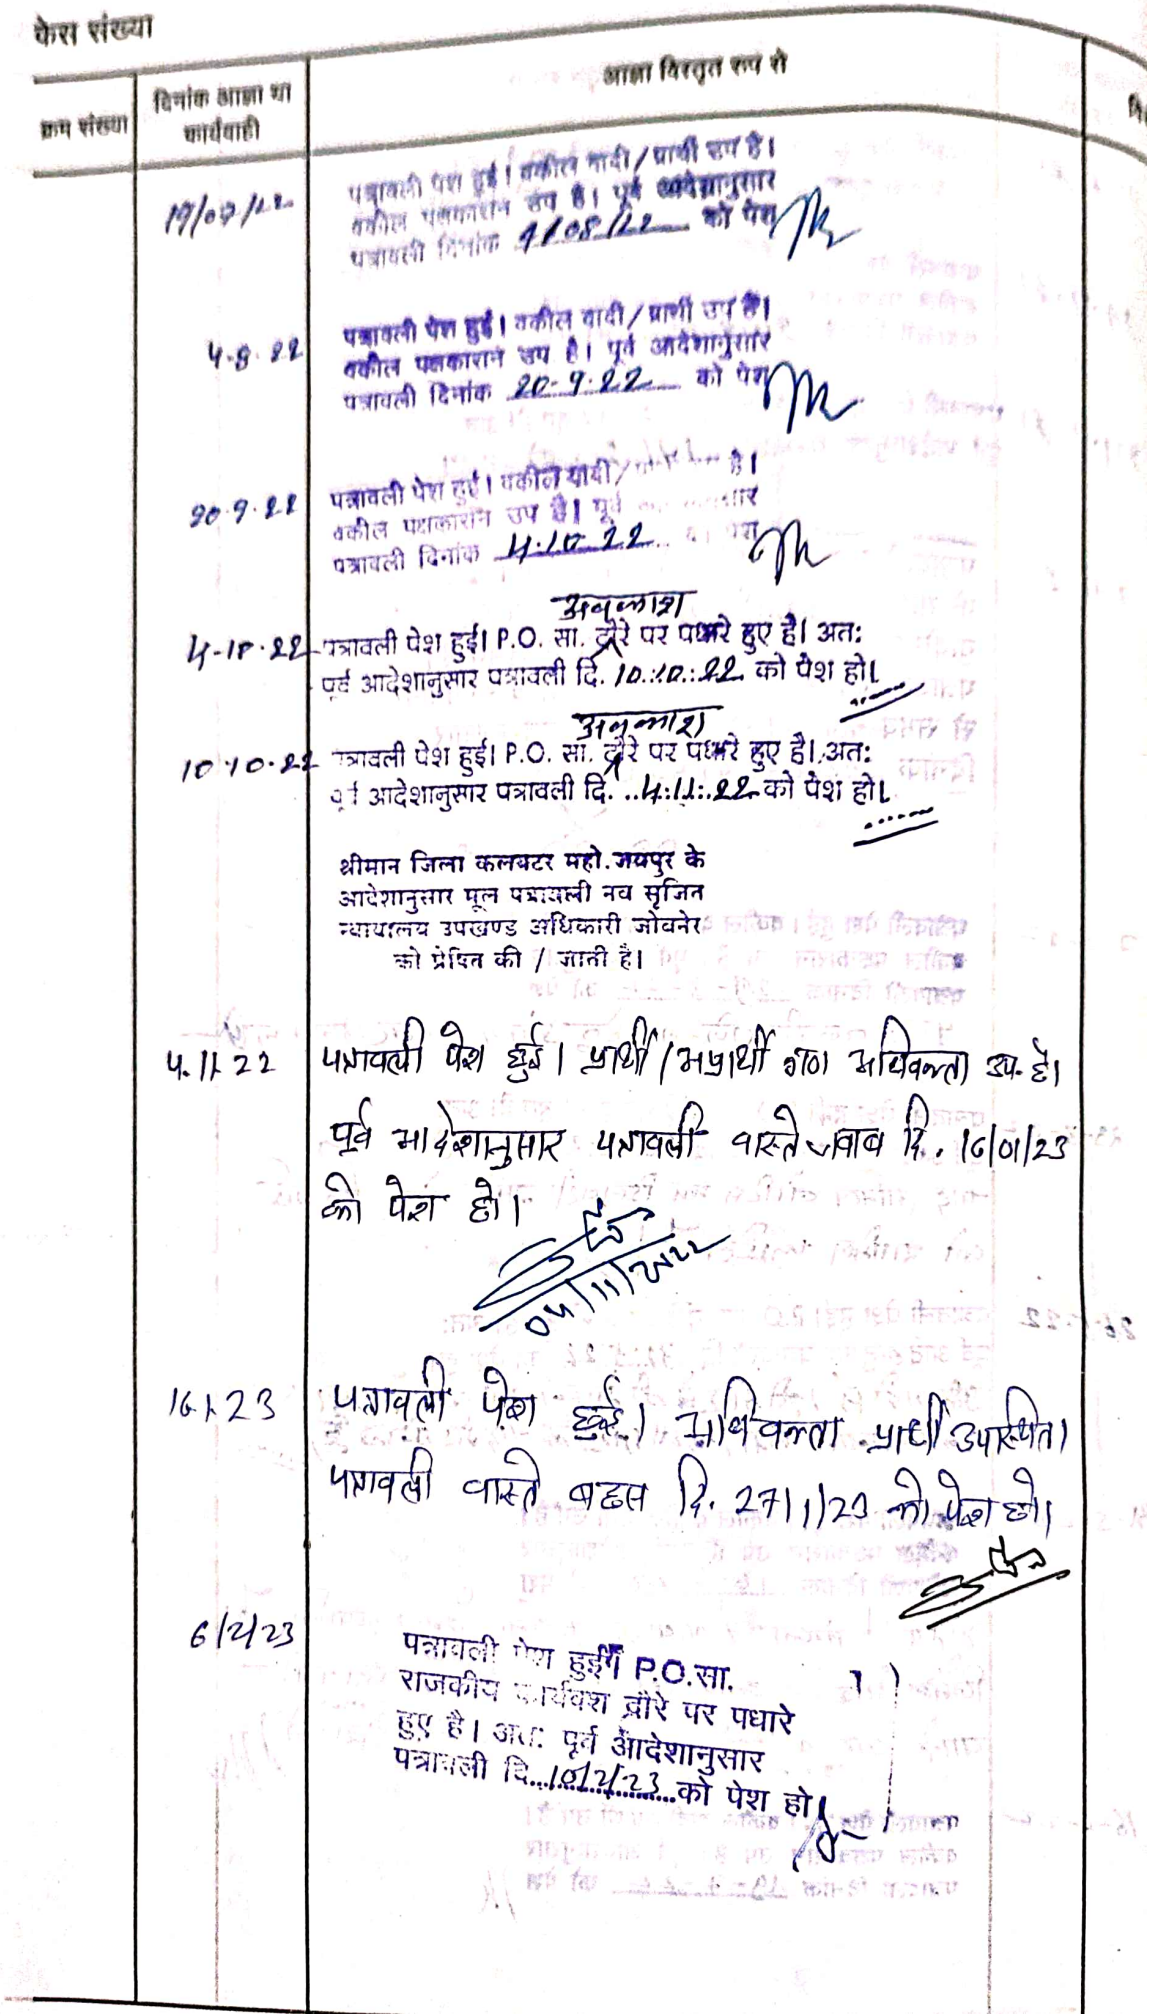 केस संख्या
क्रम संख्या
दिनांक आज्ञा या
कार्यवाही
आज्ञा विस्तृत रूप से
19/07/22
पत्रावली पेश हुई। वकील वादी/प्रार्थी उप है।
वकील पक्षकारान उप है। पूर्व आदेशानुसार
पत्रावली दिनांक 4/08/22 को पेश
4.8.22
पत्रावली पेश हुई। वकील वादी/प्रार्थी उप है।
वकील पक्षकारान उप है। पूर्व आदेशानुसार
पत्रावली दिनांक 20.9.22 को पेश
20.9.22
पत्रावली पेश हुई। वकील वादी/ है।
वकील पक्षकारान उप है। पूर्व
पत्रावली दिनांक 4.10.22 पेश
अवकाश
4.10.22 पत्रावली पेश हुई। P.O. सा. दौरे पर पधारे हुए है। अतः
पूर्व आदेशानुसार पत्रावली दि. 10.10.22 को पेश हो।
अवकाश
10.10.22 पत्रावली पेश हुई। P.O. सा. दौरे पर पधारे हुए है। अतः
पूर्व आदेशानुसार पत्रावली दि. 4.11.22 को पेश हो।
श्रीमान जिला कलक्टर महो. जयपुर के
आदेशानुसार मूल पत्रावली नव सृजित
न्यायालय उपखण्ड अधिकारी जोबनेर
को प्रेषित की / जाती है।
4.11.22 पत्रावली पेश हुई। प्रार्थी/अप्रार्थी गण अधिवक्ता उप. है।
पूर्व आदेशानुसार पत्रावली वास्ते जवाब दि. 16/01/23
को पेश हो।
04/11/2022
16.1.23 पत्रावली पेश हुई। अधिवक्ता प्रार्थी उपस्थित।
पत्रावली वास्ते बहस दि. 27/1/23 को पेश हो।
6/2/23
पत्रावली पेश हुई P.O.सा.
राजकीय कार्यवश दौरे पर पधारे
हुए है। अतः पूर्व आदेशानुसार
पत्रावली दि. 10/2/23 को पेश हो।